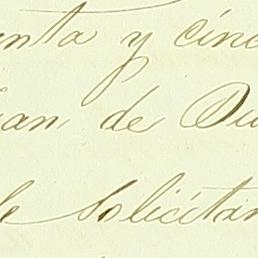 nta y cinc
an, de Du
le Solicitan